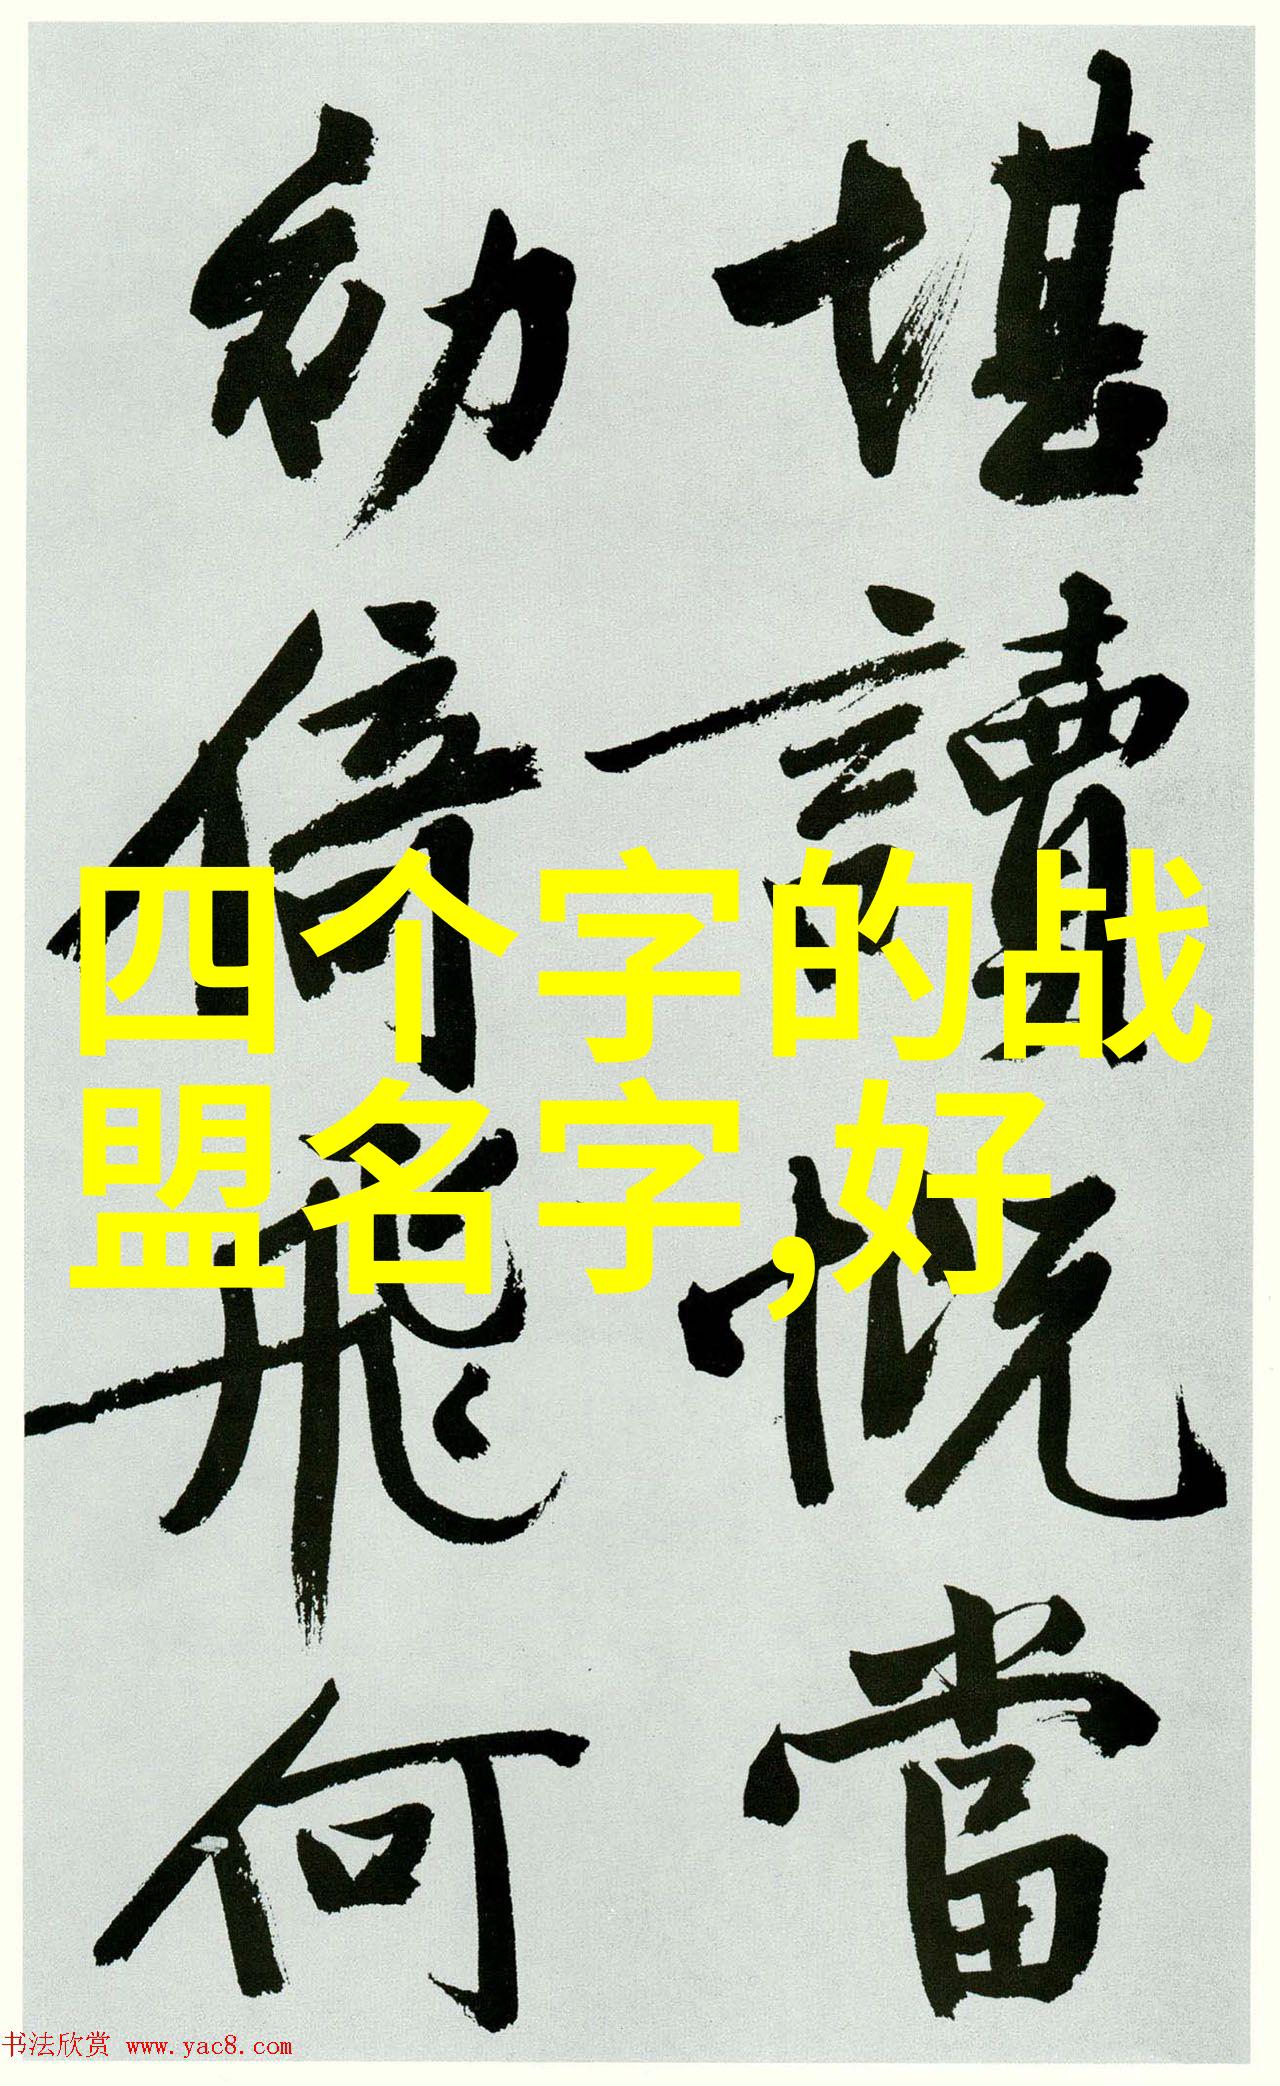 堪讀慨當
初倚飛何
四个字的战
盟名字,好
书法欣赏 www.yac8.com